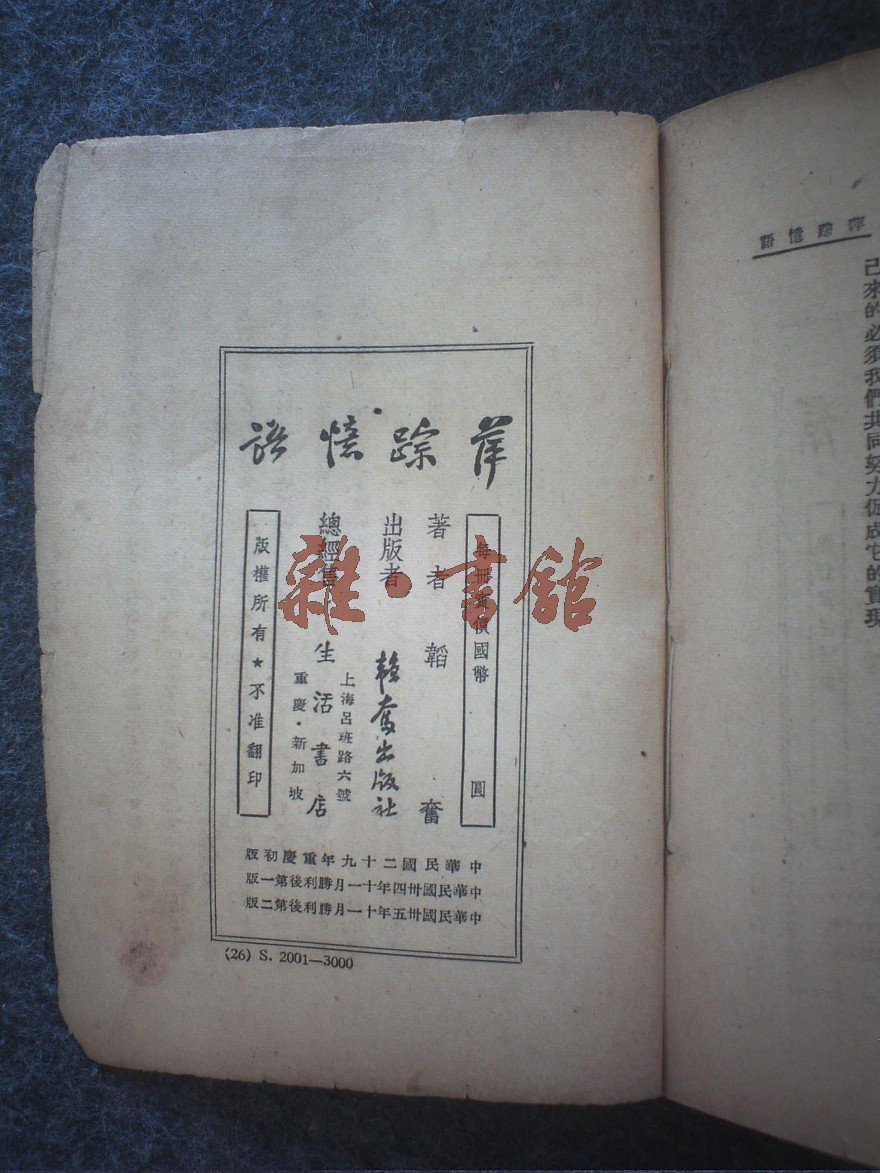 萍踪憶語
每冊 價國幣 圓
著者 韜奮
出版者 韜奮出版社
總經售 生活書店
上海呂班路六號
重慶・新加坡
版權所有★不准翻印
中華民國二十九年重慶初版
中華民國卅四年十一月勝利後第一版
中華民國卅五年十一月勝利後第二版
(26) S. 2001—3000
萍踪憶語
己來的必須我們共同努力促成它的實現
雜・書館